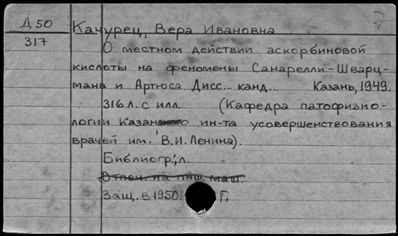 Д 50
317
Качурец, Вера Ивановна
О местном действии аскорбиновой
кислоты на феномены Санарелли-Шварц-
мана и Артюса Дисс... канд... Казань, 1949.
316 л. с илл. (Кафедра патофизио-
логии Казанского ин-та усовершенствования
врачей им. В.И. Ленина).
Библиогр., л.
Отпеч. на пиш. маш.
Защ. в 1950 г.